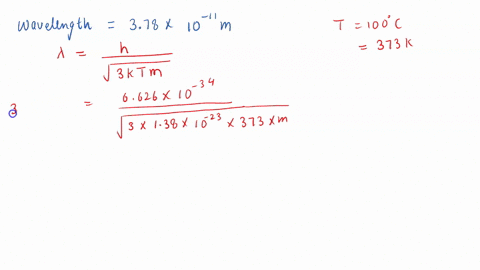 Wavelength = 3.78 × 10⁻¹¹ m
T = 100°C
= 373 K
λ = h / √(3kTm)
= 6.626 × 10⁻³⁴ / √(3 × 1.38 × 10⁻²³ × 373 × m)
3